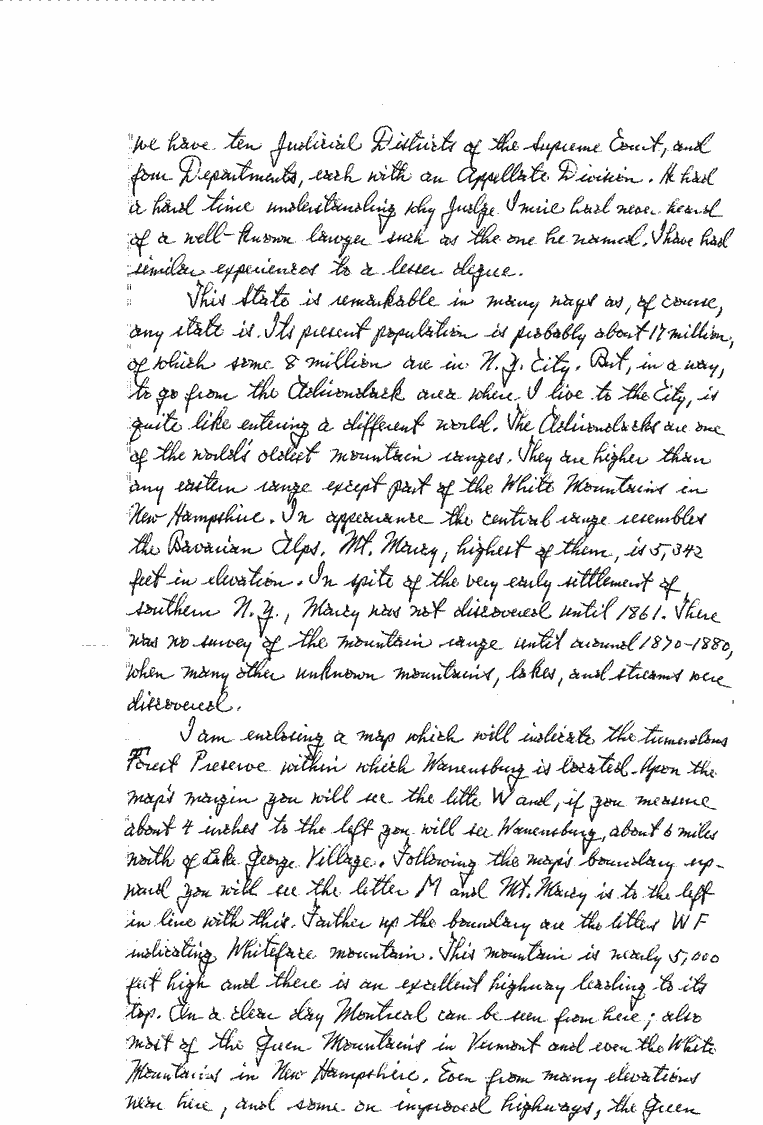 we have ten Judicial Districts of the Supreme Court, and
four Departments, each with an Appellate Division. He had
a hard time understanding why Judge Imrie had never heard
of a well-known lawyer such as the one he named. I have had
similar experiences to a lesser degree.
This State is remarkable in many ways as, of course,
any state is. Its present population is probably about 17 million,
of which some 8 million are in N.Y. City. But, in a way,
to go from the Adirondack area where I live to the City, is
quite like entering a different world. The Adirondacks are one
of the world's oldest mountain ranges. They are higher than
any eastern range except part of the White Mountains in
New Hampshire. In appearance the central range resembles
the Bavarian Alps. Mt. Marcy, highest of them, is 5,342
feet in elevation. In spite of the very early settlement of
southern N.Y., Marcy was not discovered until 1861. There
was no survey of the mountain range until around 1870-1880,
when many other unknown mountains, lakes, and streams were
discovered.
I am enclosing a map which will indicate the tremendous
Forest Preserve within which Warrensburg is located. Upon the
map's margin you will see the letter W and, if you measure
about 4 inches to the left you will see Warrensburg, about 6 miles
north of Lake George Village. Following the map's boundary up-
ward you will see the letter M and Mt. Marcy is to the left
in line with this. Farther up the boundary are the letters W F
indicating Whiteface mountain. This mountain is nearly 5,000
feet high and there is an excellent highway leading to its
top. On a clear day Montreal can be seen from here; also
most of the Green Mountains in Vermont and even the White
Mountains in New Hampshire. Even from many elevations
near here, and some on improved highways, the Green